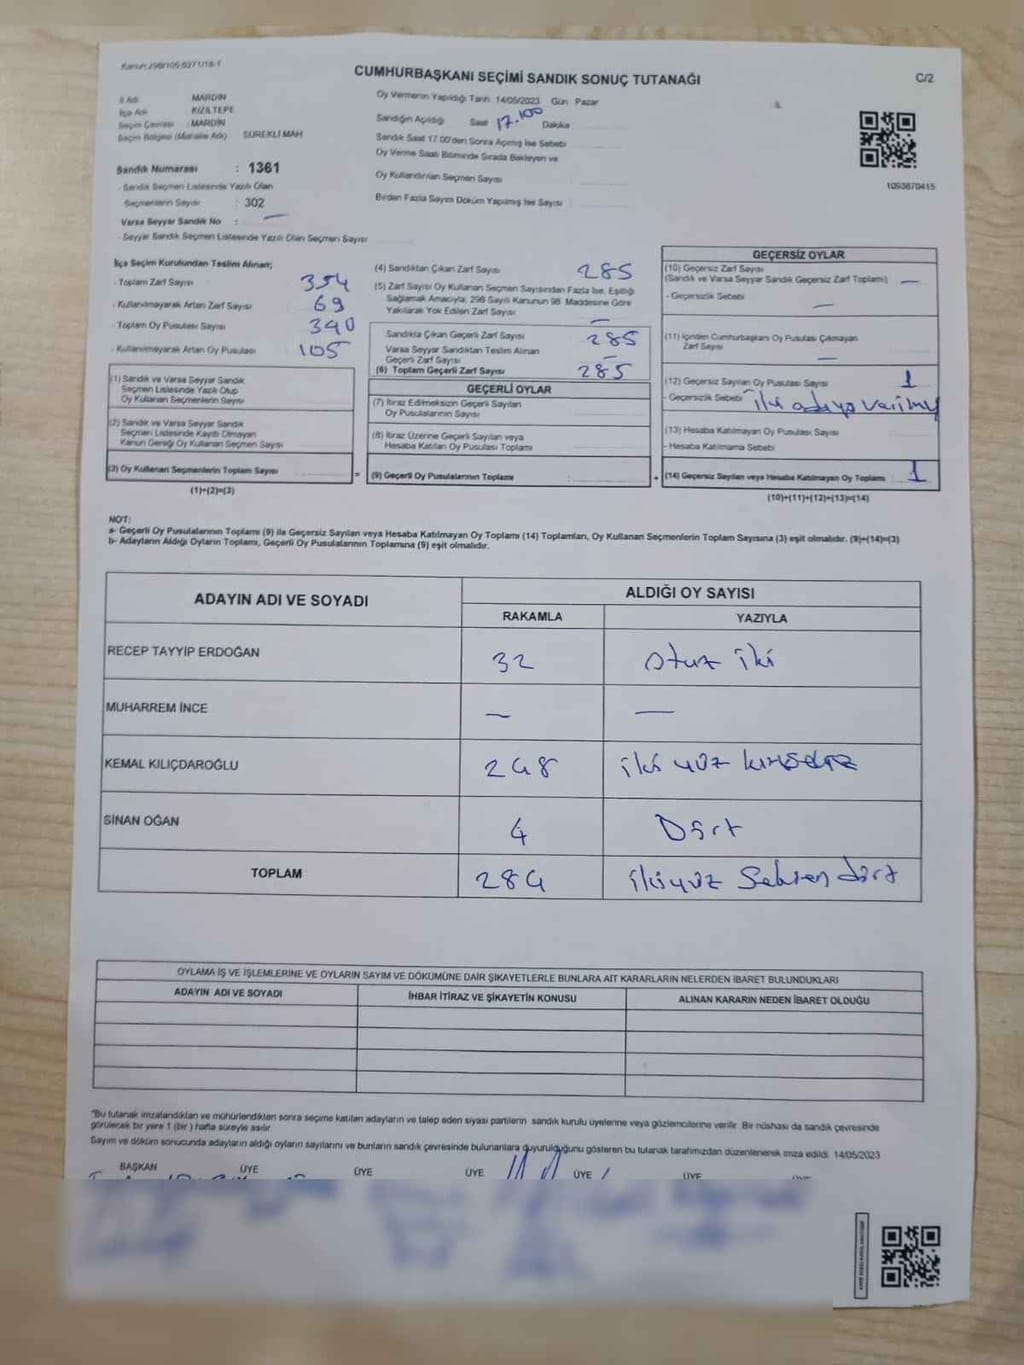 Kanun:298/105-6271/18-1
CUMHURBAŞKANI SEÇİMİ SANDIK SONUÇ TUTANAĞI
C/2
İl Adı : MARDİN
İlçe Adı : KIZILTEPE
Seçim Çevresi : MARDİN
Seçim Bölgesi (Mahalle Adı) : SÜREKLİ MAH
Sandık Numarası : 1361
- Sandık Seçmen Listesinde Yazılı Olan
Seçmenlerin Sayısı : 302
Varsa Seyyar Sandık No : —
- Seyyar Sandık Seçmen Listesinde Yazılı Olan Seçmen Sayısı
Oy Vermenin Yapıldığı Tarih: 14/05/2023 Gün Pazar
Sandığın Açıldığı Saat 17.00 Dakika
Sandık Saat 17.00'den Sonra Açılmış İse Sebebi
Oy Verme Saati Bitiminde Sırada Bekleyen ve
Oy Kullandırılan Seçmen Sayısı
Birden Fazla Sayım Döküm Yapılmış İse Sayısı
1093870415
İlçe Seçim Kurulundan Teslim Alınan;
- Toplam Zarf Sayısı 354
- Kullanılmayarak Artan Zarf Sayısı 69
- Toplam Oy Pusulası Sayısı 390
- Kullanılmayarak Artan Oy Pusulası 105
(1) Sandık ve Varsa Seyyar Sandık
Seçmen Listesinde Yazılı Olup
Oy Kullanan Seçmenlerin Sayısı
(2) Sandık ve Varsa Seyyar Sandık
Seçmen Listesinde Kayıtlı Olmayan
Kanun Gereği Oy Kullanan Seçmen Sayısı
(3) Oy Kullanan Seçmenlerin Toplam Sayısı
(1)+(2)=(3)
(4) Sandıktan Çıkan Zarf Sayısı 285
(5) Zarf Sayısı Oy Kullanan Seçmen Sayısından Fazla İse, Eşitliği
Sağlamak Amacıyla, 298 Sayılı Kanunun 98. Maddesine Göre
Yakılarak Yok Edilen Zarf Sayısı —
Sandıkta Çıkan Geçerli Zarf Sayısı 285
Varsa Seyyar Sandıktan Teslim Alınan
Geçerli Zarf Sayısı —
(6) Toplam Geçerli Zarf Sayısı 285
GEÇERLİ OYLAR
(7) İtiraz Edilmeksizin Geçerli Sayılan
Oy Pusulalarının Sayısı
(8) İtiraz Üzerine Geçerli Sayılan veya
Hesaba Katılan Oy Pusulaları Toplamı
= (9) Geçerli Oy Pusulalarının Toplamı
GEÇERSİZ OYLAR
(10) Geçersiz Zarf Sayısı
(Sandık ve Varsa Seyyar Sandık Geçersiz Zarf Toplamı) —
- Geçersizlik Sebebi —
(11) İçinden Cumhurbaşkanı Oy Pusulası Çıkmayan
Zarf Sayısı —
(12) Geçersiz Sayılan Oy Pusulası Sayısı 1
- Geçersizlik Sebebi iki adaya
(13) Hesaba Katılmayan Oy Pusulası Sayısı
- Hesaba Katılmama Sebebi
+ (14) Geçersiz Sayılan veya Hesaba Katılmayan Oy Toplamı 1
(10)+(11)+(12)+(13)=(14)
NOT:
a- Geçerli Oy Pusulalarının Toplamı (9) ile Geçersiz Sayılan veya Hesaba Katılmayan Oy Toplamı (14) Toplamları, Oy Kullanan Seçmenlerin Toplam Sayısına (3) eşit olmalıdır. (9)+(14)=(3)
b- Adayların Aldığı Oyların Toplamı, Geçerli Oy Pusulalarının Toplamına (9) eşit olmalıdır.
ADAYIN ADI VE SOYADI
ALDIĞI OY SAYISI
RAKAMLA YAZIYLA
RECEP TAYYİP ERDOĞAN 32 otuz iki
MUHARREM İNCE — —
KEMAL KILIÇDAROĞLU 248 iki yüz kırksekiz
SİNAN OĞAN 4 Dört
TOPLAM 284 ikiyüz Seksen dört
OYLAMA İŞ VE İŞLEMLERİNE VE OYLARIN SAYIM VE DÖKÜMÜNE DAİR ŞİKAYETLERLE BUNLARA AİT KARARLARIN NELERDEN İBARET BULUNDUKLARI
ADAYIN ADI VE SOYADI İHBAR İTİRAZ VE ŞİKAYETİN KONUSU ALINAN KARARIN NEDEN İBARET OLDUĞU
"Bu tutanak imzalandıktan ve mühürlendikten sonra seçime katılan adayların ve talep eden siyasi partilerin sandık kurulu üyelerine veya gözlemcilerine verilir. Bir nüshası da sandık çevresinde
görülecek bir yere 1 (bir ) hafta süreyle asılır.
Sayım ve döküm sonucunda adayların aldığı oyların sayılarını ve bunların sandık çevresinde bulunanlara duyurulduğunu gösteren bu tutanak tarafımızdan düzenlenerek imza edildi. 14/05/2023
BAŞKAN ÜYE ÜYE ÜYE ÜYE ÜYE